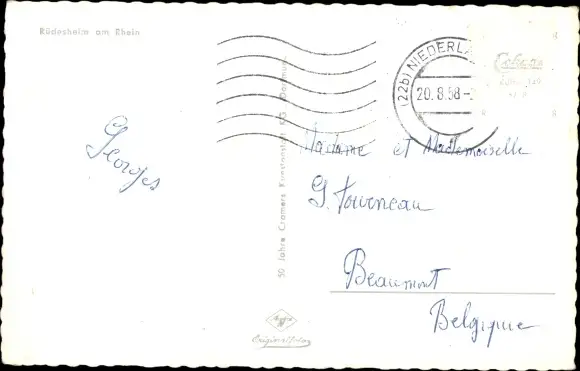 Rüdesheim am Rhein
(22b) NIEDERLA
20.8.58-
Georges
Madame et Mademoiselle
G. Tourneau
Beaumont
Belgique
50 Jahre Cramers Kunstanstalt KG, Dortmund